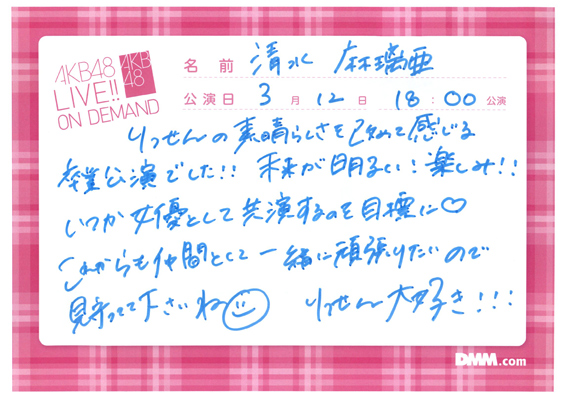 AKB48
LIVE!!
ON DEMAND
AKB
48
名前 清水 麻璃亜
公演日 3月12日 18:00公演
りっせんの素晴らしさを改めて感じる
卒業公演でした!! 未来が明るい!楽しみ!!
いつか女優として共演するのを目標に♡
これからも仲間として一緒に頑張りたいので
見守ってて下さいね りっせん大好き!!!
DMM.com